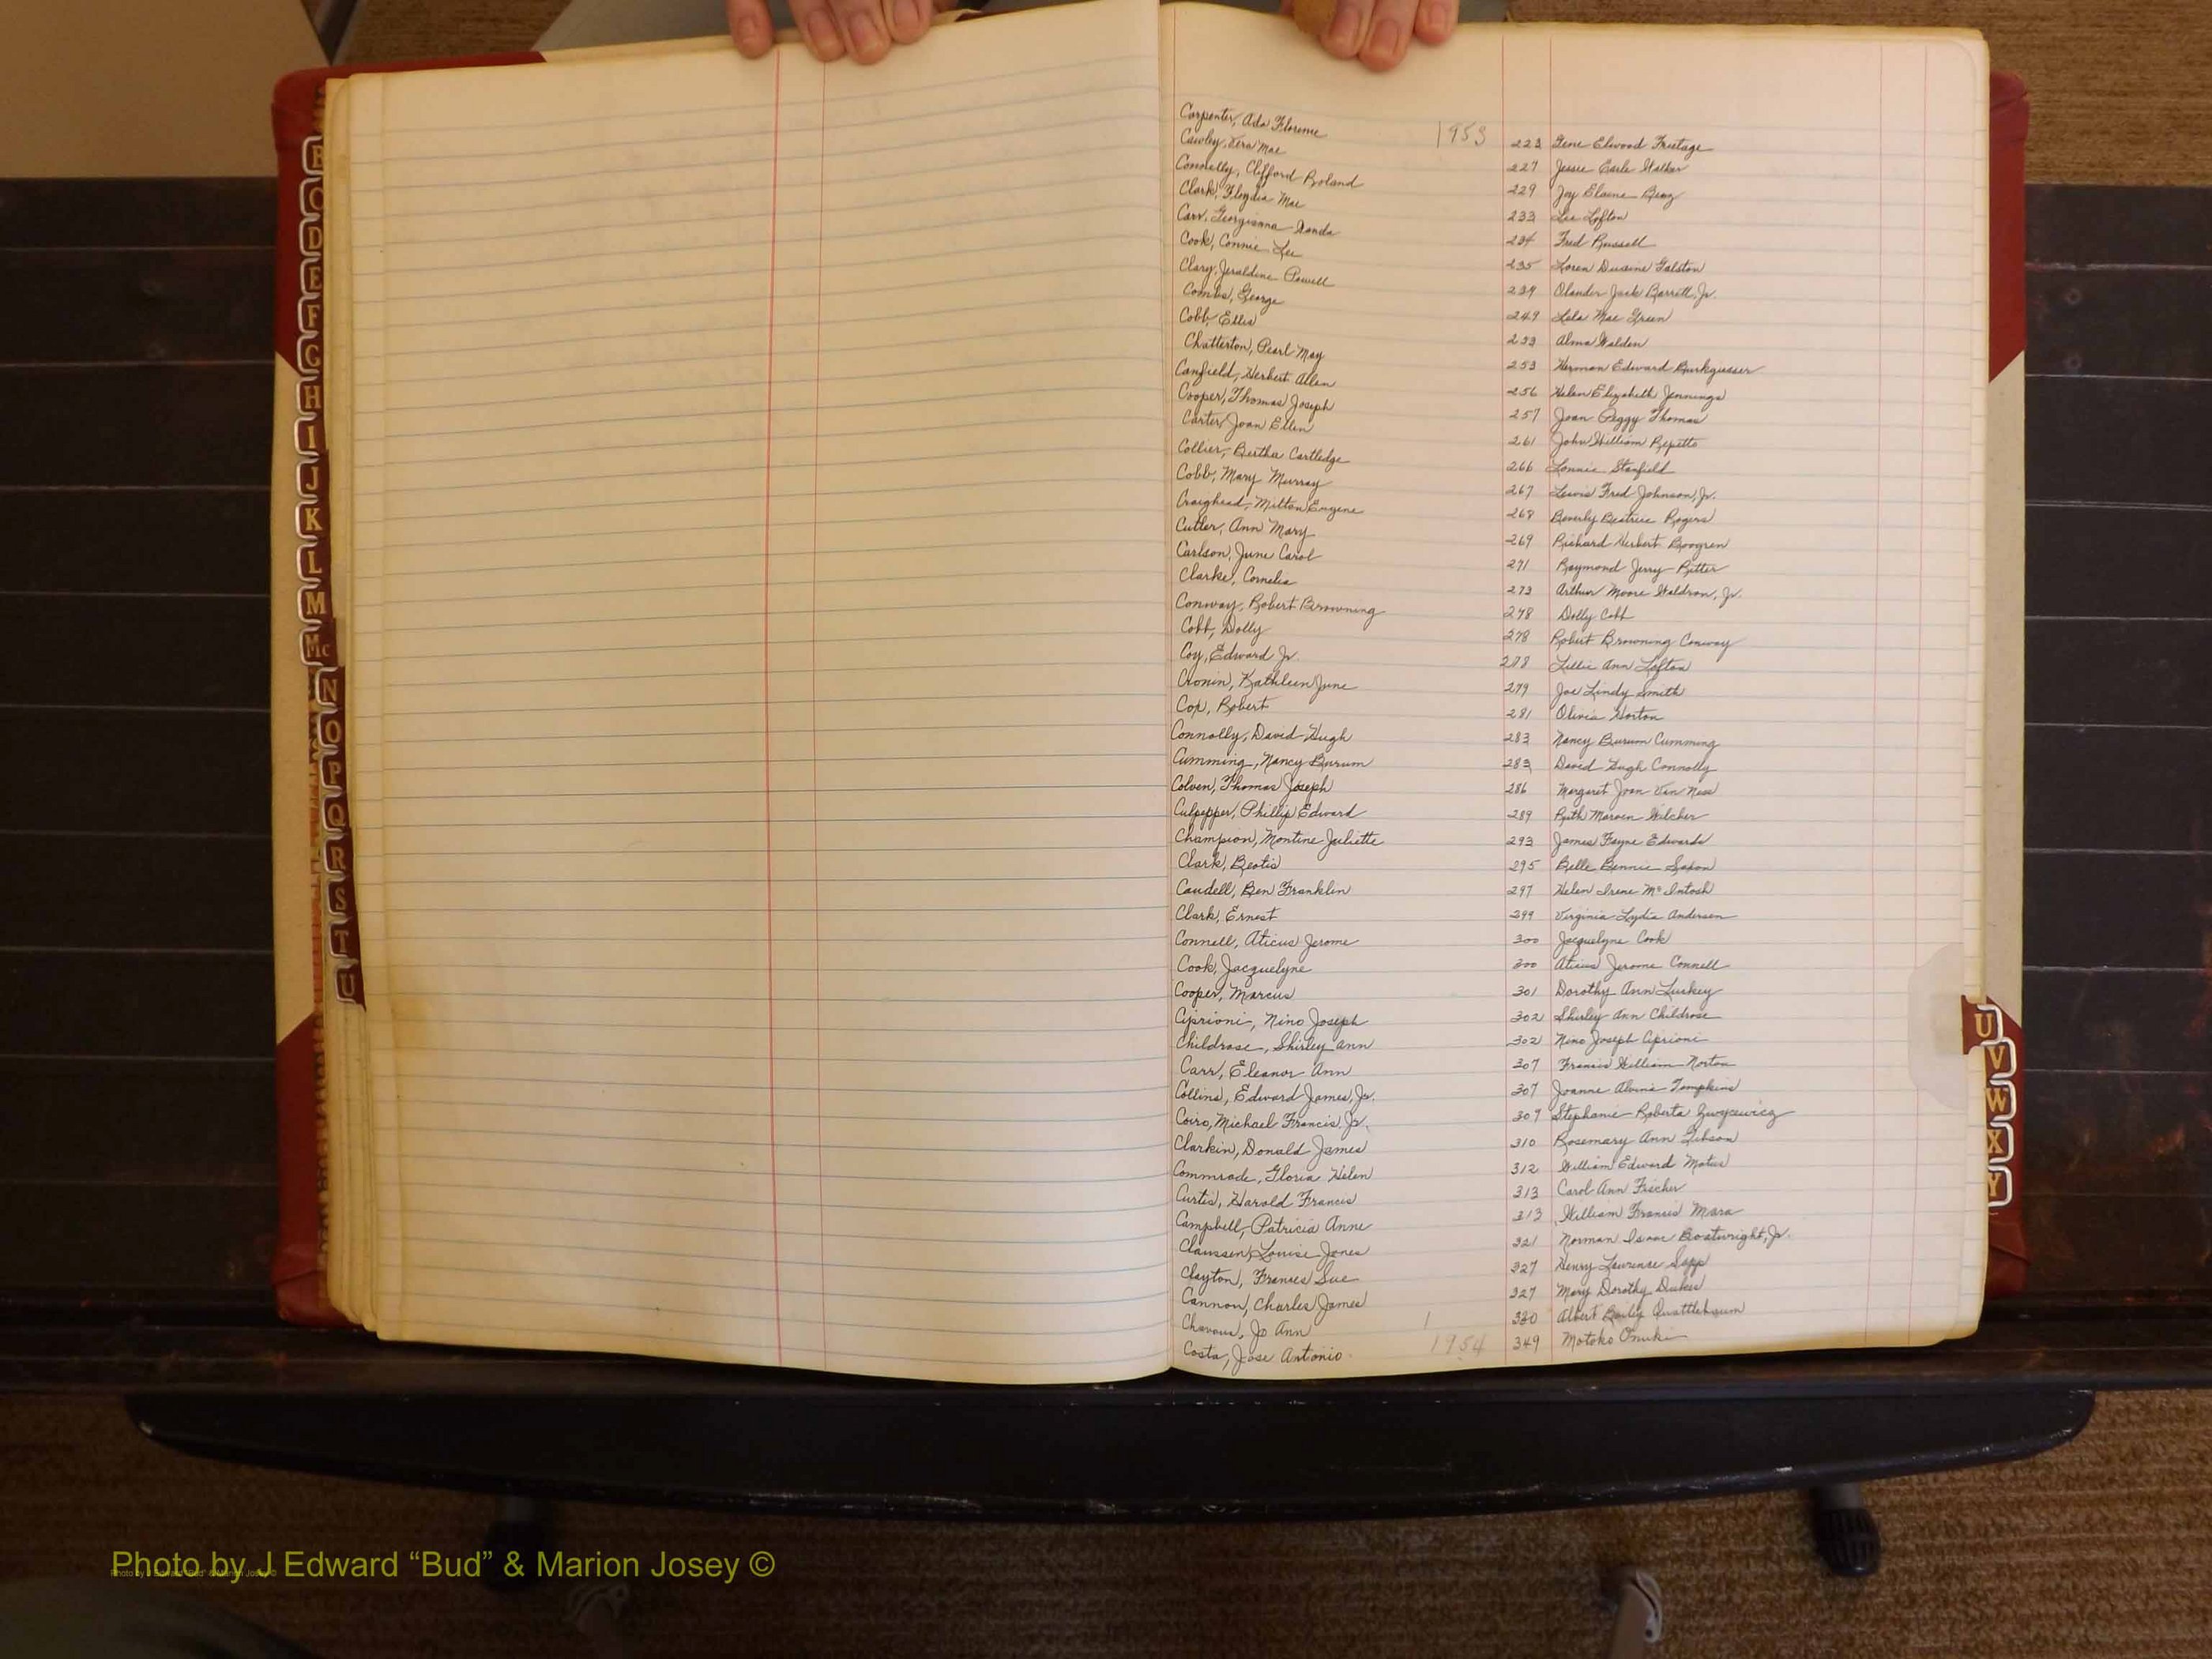 Carpenter, Ada Florence 1953 223 Gene Elwood Frestage
Cawley, Vera Mae 227 Jessie Earle Walker
Connolly, Clifford Roland 229 Joy Elaine Benz
Clark, Floydia Mae 233 Lee Lofton
Carr, Georgianna Wanda 234 Fred Russell
Cook, Connie Lee 235 Loren Duaine Galston
Clary, Jeraldine Powell 239 Olander Jack Barrett, Jr.
Combs, George 249 Lela Mae Green
Cobb, Ellis 233 Alma Walden
Chatterton, Pearl May 253 Herman Edward
Canfield, Herbert Allen 256 Helen Elizabeth Jennings
Cooper, Thomas Joseph 257 Joan Peggy Thomas
Carter, Joan Ellen 261 John William Repetto
Collier, Bertha Cartledge 266 Lonnie Stanfield
Cobb, Mary Murray 267 Lewis Fred Johnson, Jr.
Craighead, Milton Eugene 268 Beverly Beatrice Rogers
Cutler, Ann Mary 269 Richard Herbert Boogren
Carlson, June Carol 271 Raymond Jerry Ritter
Clarke, Cornelia 273 Arthur Moore Waldron, Jr.
Conway, Robert Browning 278 Dolly Cobb
Cobb, Dolly 278 Robert Browning Conway
Coy, Edward Jr. 278 Lillie Ann Lofton
Cronin, Kathleen June 279 Joe Lindy Smith
Cox, Robert 281 Olivia Horton
Connolly, David Hugh 283 Nancy Burum Cumming
Cumming, Nancy Burum 283 David Hugh Connolly
Colven, Thomas Joseph 286 Margaret Joan Van Ness
Culpepper, Phillip Edward 289 Ruth Marven Wilcher
Champion, Montine Juliette 293 James Fayne Edwards
Clark, Beotis 295 Belle Bennie Saxon
Caudell, Ben Franklin 297 Helen Irene McIntosh
Clark, Ernest 299 Virginia Lydia Anderson
Connell, Aticus Jerome 300 Jacquelyne Cook
Cook, Jacquelyne 300 Aticus Jerome Connell
Cooper, Marcus 301 Dorothy Ann Luckey
Ciprioni, Nino Joseph 302 Shirley Ann Childrose
Childrose, Shirley Ann 302 Nino Joseph Ciprioni
Carr, Eleanor Ann 307 Francis William Norton
Collins, Edward James, Jr. 307 Joanne Alvina Tompkins
Coiro, Michael Francis, Jr. 309 Stephanie Roberta
Clarkin, Donald James 310 Rosemary Ann Gibson
Commrade, Gloria Helen 312 William Edward Motus
Curtis, Harold Francis 313 Carol Ann Fischer
Campbell, Patricia Anne 313 William Francis Mara
Claussen, Louise Jones 321 Norman Isaac Boatwright, Jr.
Clayton, Frances Sue 327 Henry Lawrence Sapp
Cannon, Charles James 327 Mary Dorothy Dukes
Chavous, Jo Ann 330 Albert Early Quattlebaum
Costa, Jose Antonio 1954 349 Motoko Onuki
B
C
D
E
F
G
H
I
J
K
L
M
Mc
N
O
P
Q
R
S
T
U
U
V
W
X
Y
Photo by J Edward “Bud” & Marion Josey ©
Photo by J Edward “Bud” & Marion Josey ©